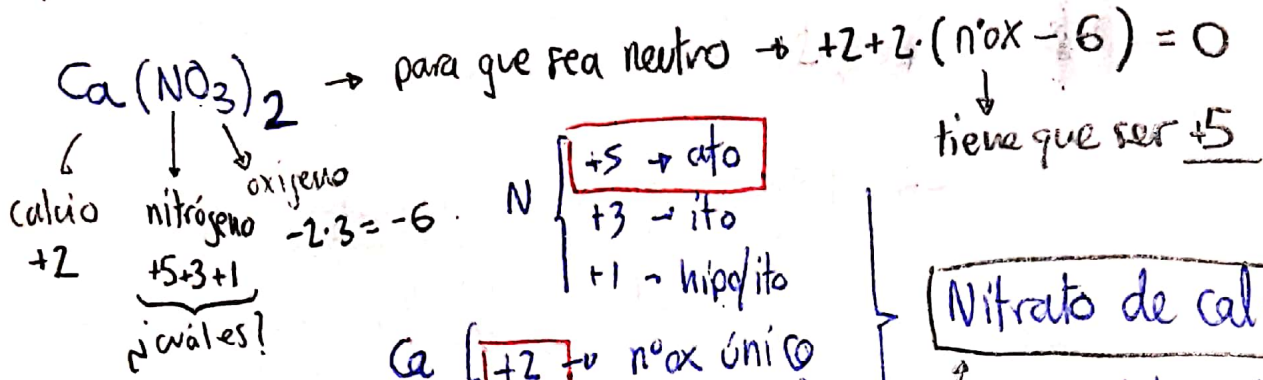 Ca(NO3)2 → para que sea neutro → +2+2·(nºox - 6) = 0
tiene que ser +5
calcio
+2
nitrógeno
+5+3+1
¿cuál es?
oxígeno
-2·3=-6.
N
+5 → ato
+3 → ito
+1 → hipo/ito
Ca +2 → nºox único
Nitrato de cal